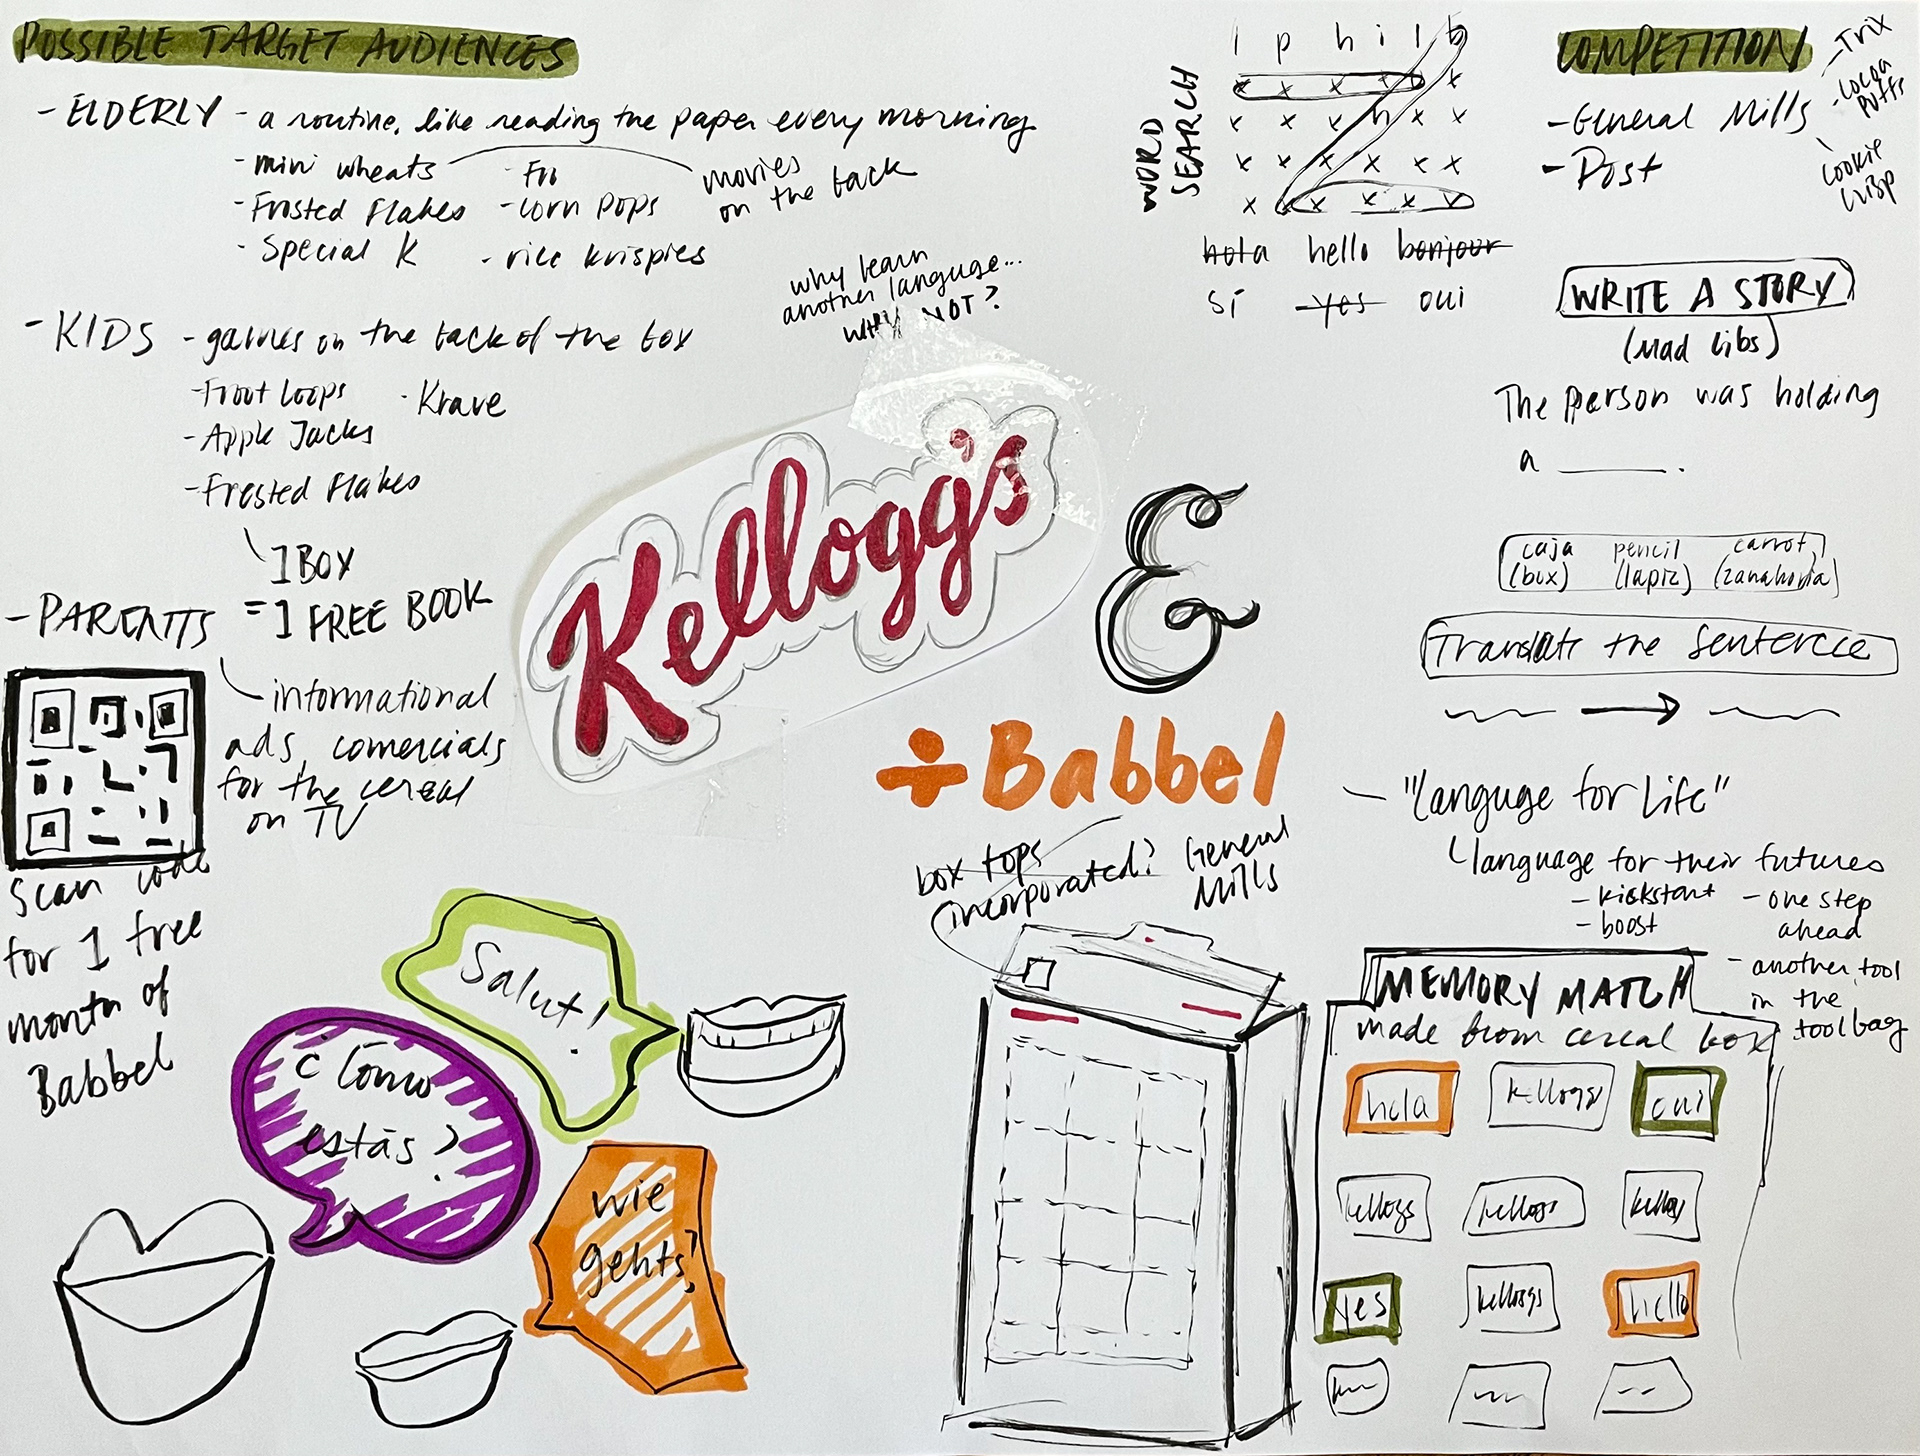 POSSIBLE TARGET AUDIENCES
- ELDERLY - a routine, like reading the paper every morning
- mini wheats
- Frosted Flakes
- Special K
- Fro
- Corn Pops
- rice krispies
movies
on the back
- KIDS - games on the back of the box
- Froot Loops
- Apple Jacks
- Frosted Flakes
- Krave
1 BOX
= 1 FREE BOOK
- PARENTS
- informational
ads, comercials
for the cereal
on TV
Scan code
for 1 free
month of
Babbel
why learn
another languge...
why NOT?
Kellogg's
&
÷Babbel
WORD
SEARCH
l p h i l b
x x x x x x
x x x n x x
x x x x x x
x x x x x x
hola hello bonjour
sí yes oui
COMPETITION
- General Mills
- Post
- Trix
- Cocoa
Puffs
Cookie
Crisp
WRITE A STORY
(Mad Libs)
The person was holding
a ______.
caja pencil carrot
(box) (lapiz) (zanahoria)
Translate the Sentence
- "languge for life"
language for their futures
- kickstart
- boost
- one step
ahead
- another tool
in the
toolbag
box tops
incorporated?
General
Mills
Salut!
¿Cómo
estás?
wie
gehts?
MEMORY MATCH
made from cereal box
hola kellogs oui
kellogs kellogs kellogs
yes kellogs hello